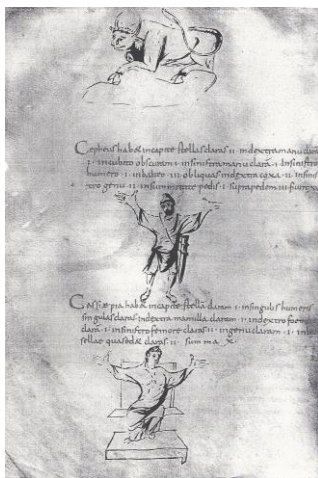 Cepheus habet in capite stellas claras ·II· in dextra manu clarā
·I· in cubito obscuram ·I· in sinistra manu clarā ·I· in sinistro
humero ·I· in balteo ·III· obliquas in dextra coxa ·II· in sinis
tro genu ·II· in summitate pedis ·I· supra pedem
Cassiepia habet in capite stellā claram ·I· in singulis humeris
singulas claras in dextra mamilla claram ·I· in dextro
clarā ·I· in sinistro femore claras ·II· in genu claram ·I· in
sellae quasdā claras ·II· summa ·X·